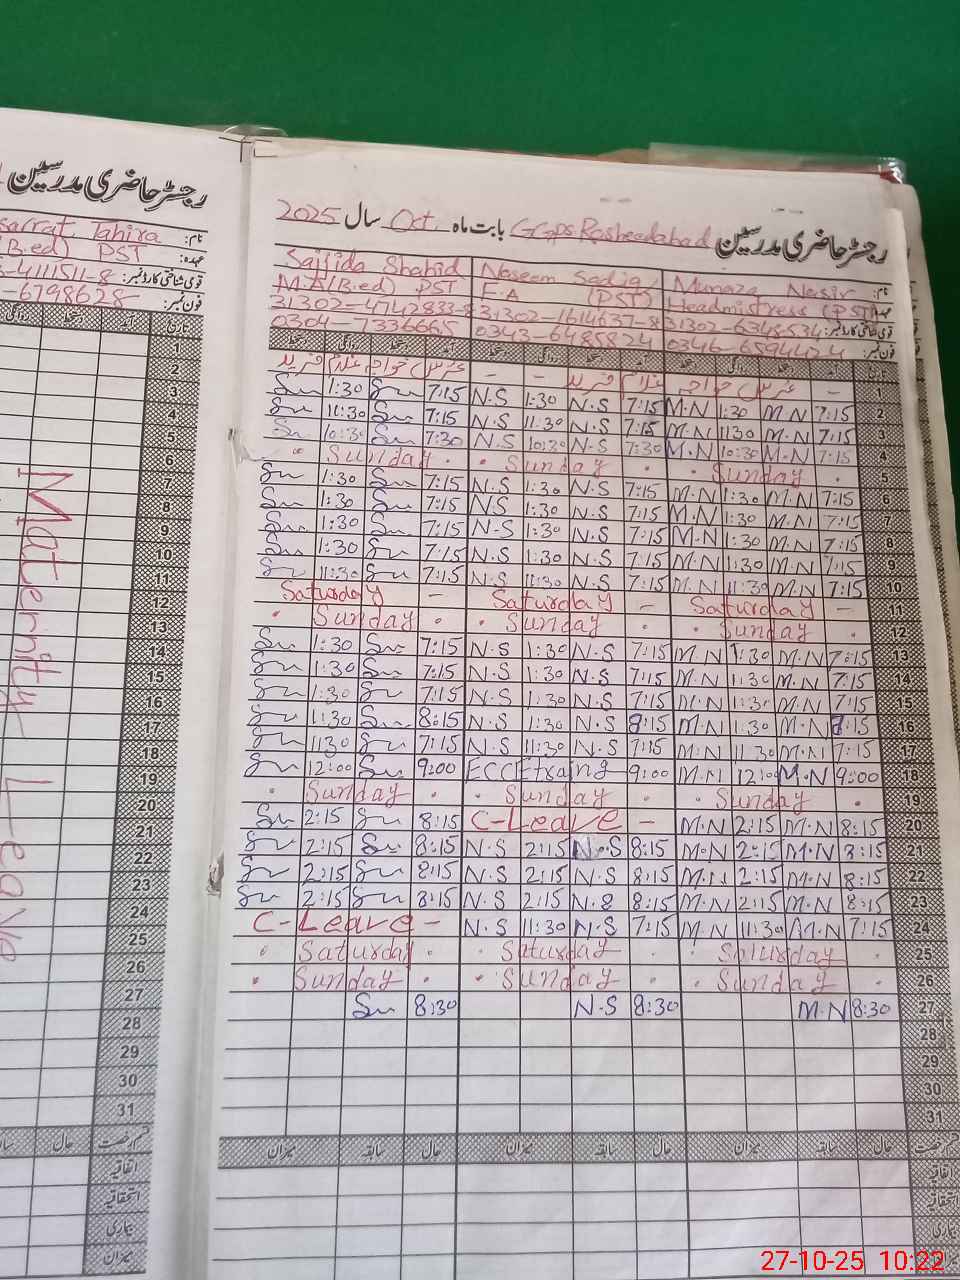 رجسٹر حاضری مدرسین
Tahira
نام:
(B.ed) PST
عہدہ:
-4111511-8
قومی شناختی کارڈ نمبر:
-6798628
فون نمبر:
Maternity Leave
رجسٹر حاضری مدرسین GGPS Rasheedabad بابت ماہ Oct. سال 2025
نام: Munaza Nasir Naseem Sadiq Sajjida Shahid
عہدہ: Headmistress (PST) F.A (PST) M.A(B.ed) PST
قومی شناختی کارڈ نمبر: 31302-1614637-8 31302-4742833-8
فون نمبر: 0343-6485824 0304-7336665
1 — عرس خواجہ غلام فرید — — عرس خواجہ غلام فرید
2 7:15 M.N 1:30 M.N 7:15 N.S 1:30 N.S 7:15 1:30
3 7:15 M.N 1130 M.N 7:15 N.S 11:30 N.S 7:15 11:30
4 7:15 M.N 10:30 M.N 7:30 N.S 10:30 N.S 7:30 10:30
5 Sunday Sunday Sunday
6 7:15 M.N 1:30 M.N 7:15 N.S 1:30 N.S 7:15 1:30
7 7:15 M.N 1:30 M.N 7:15 N.S 1:30 N.S 7:15 1:30
8 7:15 M.N 1:30 M.N 7:15 N.S 1:30 N.S 7:15 1:30
9 7:15 M.N 1:30 M.N 7:15 N.S 1:30 N.S 7:15 1:30
10 7:15 M.N 11:30 M.N 7:15 N.S 11:30 N.S 7:15 11:30
11 — Saturday — Saturday — Saturday
12 Sunday Sunday Sunday
13 7:15 M.N 1:30 M.N 7:15 N.S 1:30 N.S 7:15 1:30
14 7:15 M.N 1:30 M.N 7:15 N.S 1:30 N.S 7:15 1:30
15 7:15 M.N 1:30 M.N 7:15 N.S 1:30 N.S 7:15 1:30
16 8:15 M.N 1:30 M.N 8:15 N.S 1:30 N.S 8:15 1:30
17 7:15 M.N 11:30 M.N 7:15 N.S 11:30 N.S 7:15 1130
18 9:00 M.N 12:00 M.N 9:00 ECCE traing 9:00 12:00
19 Sunday Sunday Sunday
20 8:15 M.N 2:15 M.N — C-Leave 8:15 2:15
21 8:15 M.N 2:15 M.N 8:15 N.S 2:15 N.S 8:15 2:15
22 8:15 M.N 2:15 M.N 8:15 N.S 2:15 N.S 8:15 2:15
23 8:15 M.N 2:15 M.N 8:15 N.S 2:15 N.S 8:15 2:15
24 7:15 M.N 11:30 M.N 7:15 N.S 11:30 N.S — C-Leave
25 Saturday Saturday Saturday
26 Sunday Sunday Sunday
27 8:30 M.N 8:30 N.S 8:30
28
29
30
31
قسم رخصت حال سابقہ میزان حال سابقہ میزان حال سابقہ میزان
اتفاقیہ
استحقاقیہ
بیماری
میزان
27-10-25 10:22